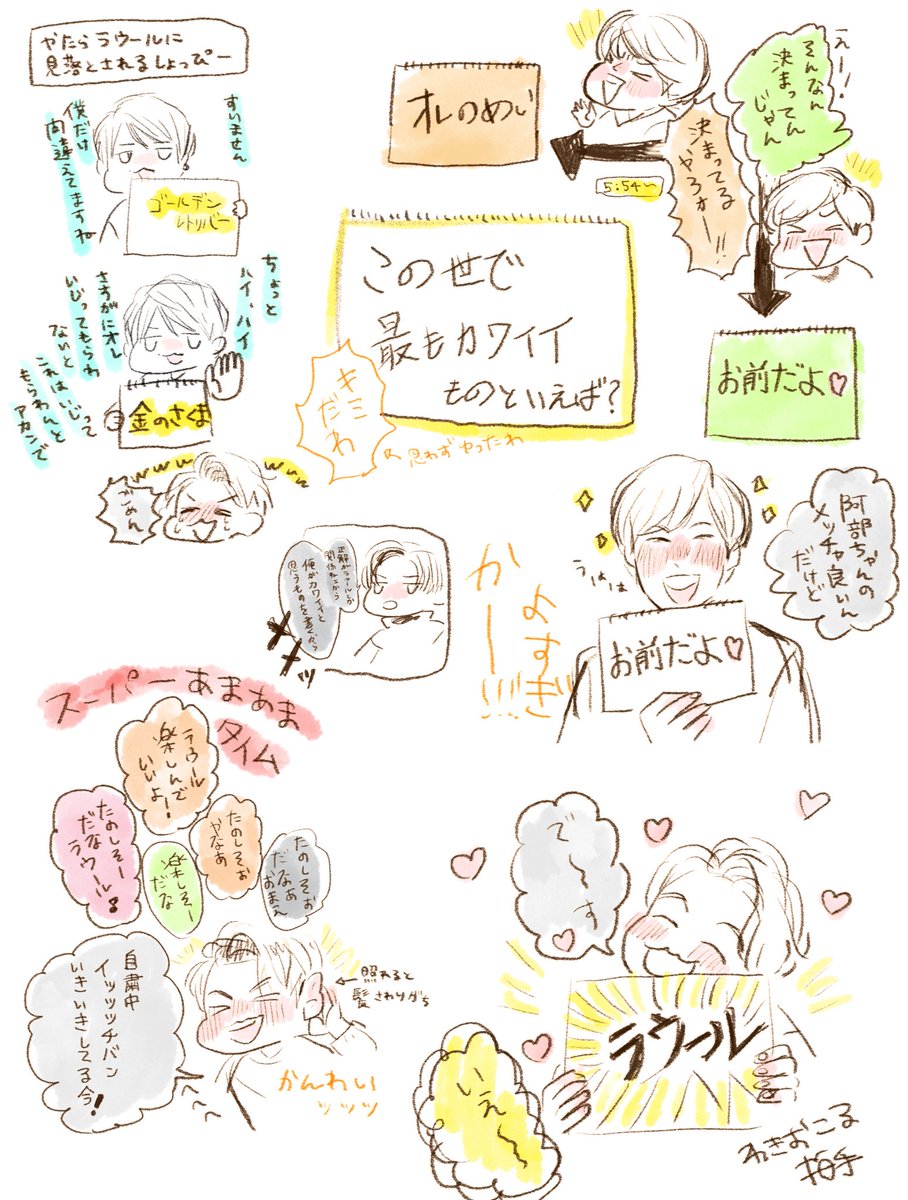 やたらラウールに
見落とされるしょっぴー
すいません
僕だけ
間違えてますね
ゴールデン
レトリバー
ちょっと
ハイ、ハイ
さすがにオレ
いじってもらわ
ないと
これはいじって
もらわんと
アカンで
金のさくま
ごめん
オレのめい
えー!
そんなん
決まってん
じゃん
決まってる
やろォー!!
5:54〜
この世で
最もカワイイ
ものといえば?
キミ
だわ
思わずやったわ
お前だよ♡
阿部ちゃんの
メッチャ良いん
だけど
うはは
お前だよ♡
よすぎ
かー!!!
正解がラウールとか
関係ねぇから
俺がカワイイと
思うものを書くから
キキッ
スーパーあまあま
タイム
ラウール
楽しんで
いいよー!
たのしそー
だな
ラウール!
たのしそお
やなあ
楽しそー
だな
たのしそお
だなあ
おまえ
自粛中
イッッッチバン
いきいきしてる今!
←照れると
髪さわりがち
かんわい
ッッッ
で〜〜す
ラウール
いえ〜〜
わきおこる
拍手